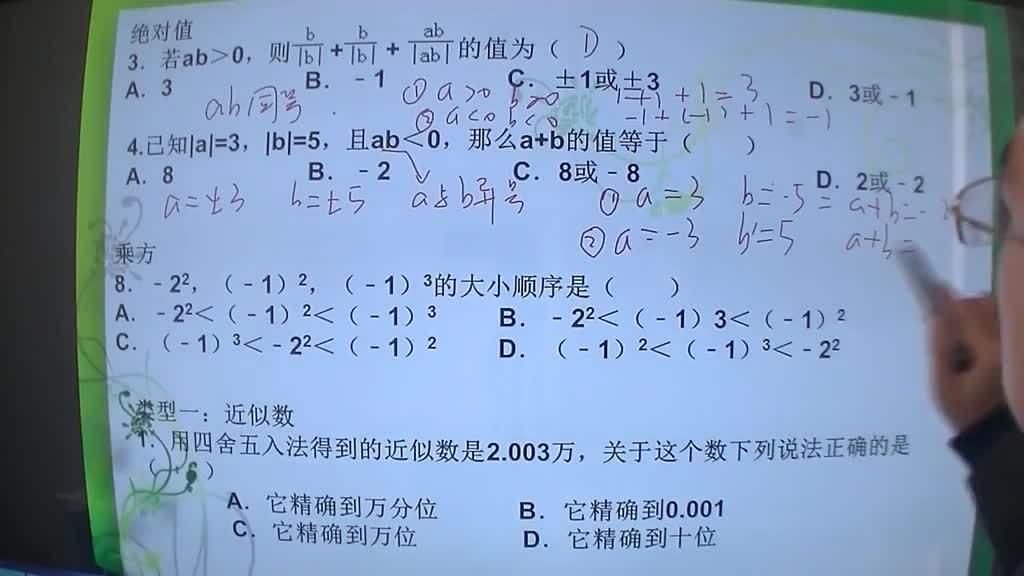 绝对值
3. 若ab>0，则b/|b|+b/|b|+ab/|ab|的值为（ D ）
A. 3 B. -1 C. ±1或±3 D. 3或-1
ab同号 ① a>0 b>0 1+1+1=3
② a<0 b<0 -1+(-1)+1=-1
4.已知|a|=3，|b|=5，且ab<0，那么a+b的值等于（ ）
A. 8 B. -2 C. 8或-8 D. 2或-2
a=±3 b=±5 a与b异号 ① a=3 b=-5 = a+b=-
② a=-3 b=5 a+b=
乘方
8. -2²，（-1）²，（-1）³的大小顺序是（ ）
A. -2²<（-1）²<（-1）³ B. -2²<（-1）3<（-1）²
C. （-1）³<-2²<（-1）² D. （-1）²<（-1）³<-2²
类型一：近似数
1. 用四舍五入法得到的近似数是2.003万，关于这个数下列说法正确的是
（ ）
A. 它精确到万分位 B. 它精确到0.001
C. 它精确到万位 D. 它精确到十位